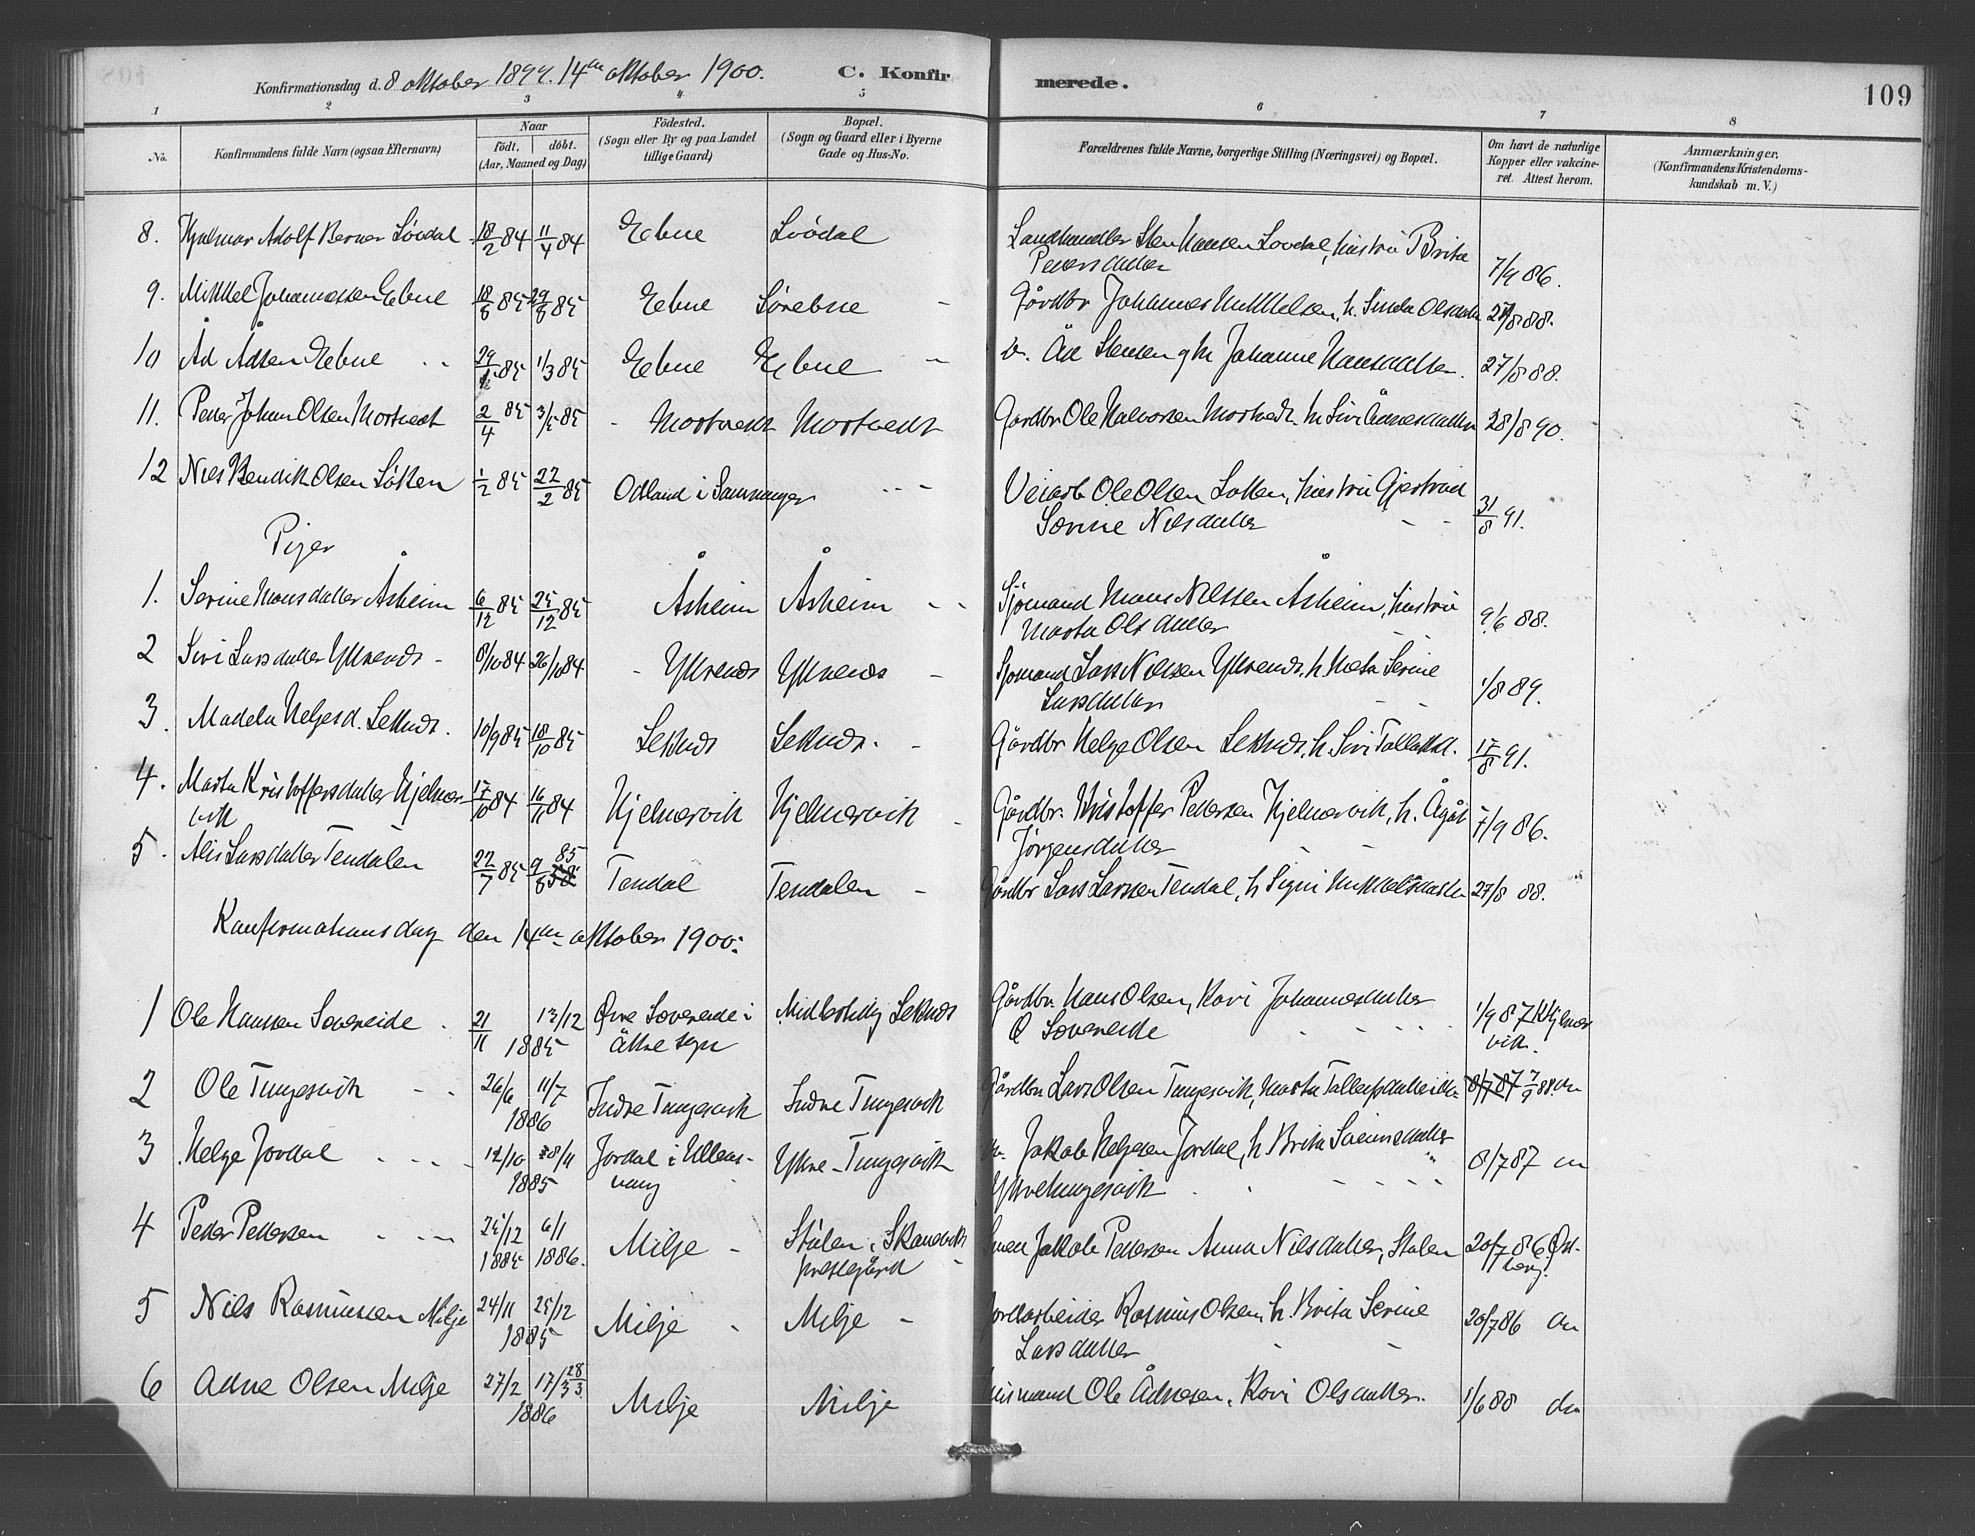 109
Konfirmationsdag d. 8 oktober 1899. 14de oktober 1900. C. Konfirmerede.
1 2 3 4 5 6 7 8
No. Konfirmandens fulde Navn (ogsaa Efternavn) Naar født. døbt. (Aar, Maaned og Dag) Fødested. (Sogn eller By og paa Landet tillige Gaard) Bopæl. (Sogn og Gaard eller i Byerne Gade og Hus-No. Forældrenes fulde Navne, borgerlige Stilling (Næringsvei) og Bopæl. Om havt de naturlige Kopper eller vakcineret. Attest herom. Anmærkninger. (Konfirmandens Kristendomskundskab m. V.)
8. Hjalmar Adolf Berner Løvdal 18/2 84 11/4 84 Ebne Løvdal Landhandler Sten Hansen Lovdal, hustru Brita
Pedersdatter 7/9 86.
9. Mikkel Johannessen Ebne 18/6 85 29/8 85 Ebne Sørebne Gårdbr Johannes Mikkelsen, h. Olsdatter 27/8 88.
10 Åd Ådsen Ebne 85 1/3 85 Ebne Ebne Åd Stensen og h Johanne Hansdatter. 27/8 88.
11. Peder Johan Olsen Mortvedt 2/4 85 3/5 85 Mortvedt Mortvedt Gårdbr Ole Halvorsen Mortvedt. h Siri 28/8 90.
12 Nils Bendik Olsen Løkken 1/2 85 22/2 85 Odland i Samnanger Veiarb Ole Olsen Løkken, hustru Gjertrud
Sørine Nilsdatter 31/8 91.
Piger
1. Serine Monsdatter Åsheim 6/12 85 25/12 85 Åsheim Åsheim Sjømand Mons Nilssen Åsheim, hustru
Marta Olsdatter 9/6 88.
2 Siri Larsdatter Ytrends 8/10 84 26/10 84 Ytrends Ytrends Sjømand Lars Nilssen Ytrends, h. Meta Serine
Larsdatter 1/8 89.
3. Madela Helgesd. Seknds. 10/9 85 18/10 85 Seknds Seknds. Gårdbr Helge Olsen Seknds, h. Siri 17/8 91.
4. Marta Kristoffersdatter Kjelnes-
vik 17/10 84 16/11 84 Kjelnesvik Kjelnesvik Gårdbr. Kristoffer Pedersen Kjelnesvik, h. Ågåt
Jørgensdatter 7/9 86.
5. Alis Larsdatter Tendalen 22/7 85 9/8 85 Tendal Tendalen Gårdbr Lars Larssen Tendal, h Signi Mikkelsdatter 27/8 88.
Konfirmationsdag den 14de oktober 1900.
1 Ole Hansen Sovereide 21/11 13/12 1885 Øvre Sovereide i
Åkre sogn Midbolig Seknds Gårdbr. Hans Olsen, Kari Johannesdatter
Ø Sovereide 1/9 87 K Kjelnes
vik.
2 Ole Tungesvik 26/6 11/7 1886 Indre Tungesvik Indre Tungesvik Gårdbr Lars Olsen Tungesvik, Marta 8/7 87 7/9 88. do
3 Helge Jordal 12/10 28/11 1885 Jordal i Ullens-
vang Ytre Tungesvik do. Jakob Helgesen Jordal, h Brita
Ytre tungesvik 8/7 87 do
4 Peder Pedersen 25/12 1885 6/1 1886. Milje Stølen i Skånevik
prestegård Jakob Pedersen Anna Nilsdatter, Stølen 20/7 86 Øst-
berg.
5 Nils Rasmussen Milje 24/11 25/12 1885 Milje Milje Jordarbeider Rasmus Olsen h. Brita Serine
Larsdatter 20/7 86 do
6 Adne Olsen Milje 27/2 17/3 28/3 1886 Milje Milje Husmand Ole Ådnesen, Kari Olsdatter. 1/6 88 do